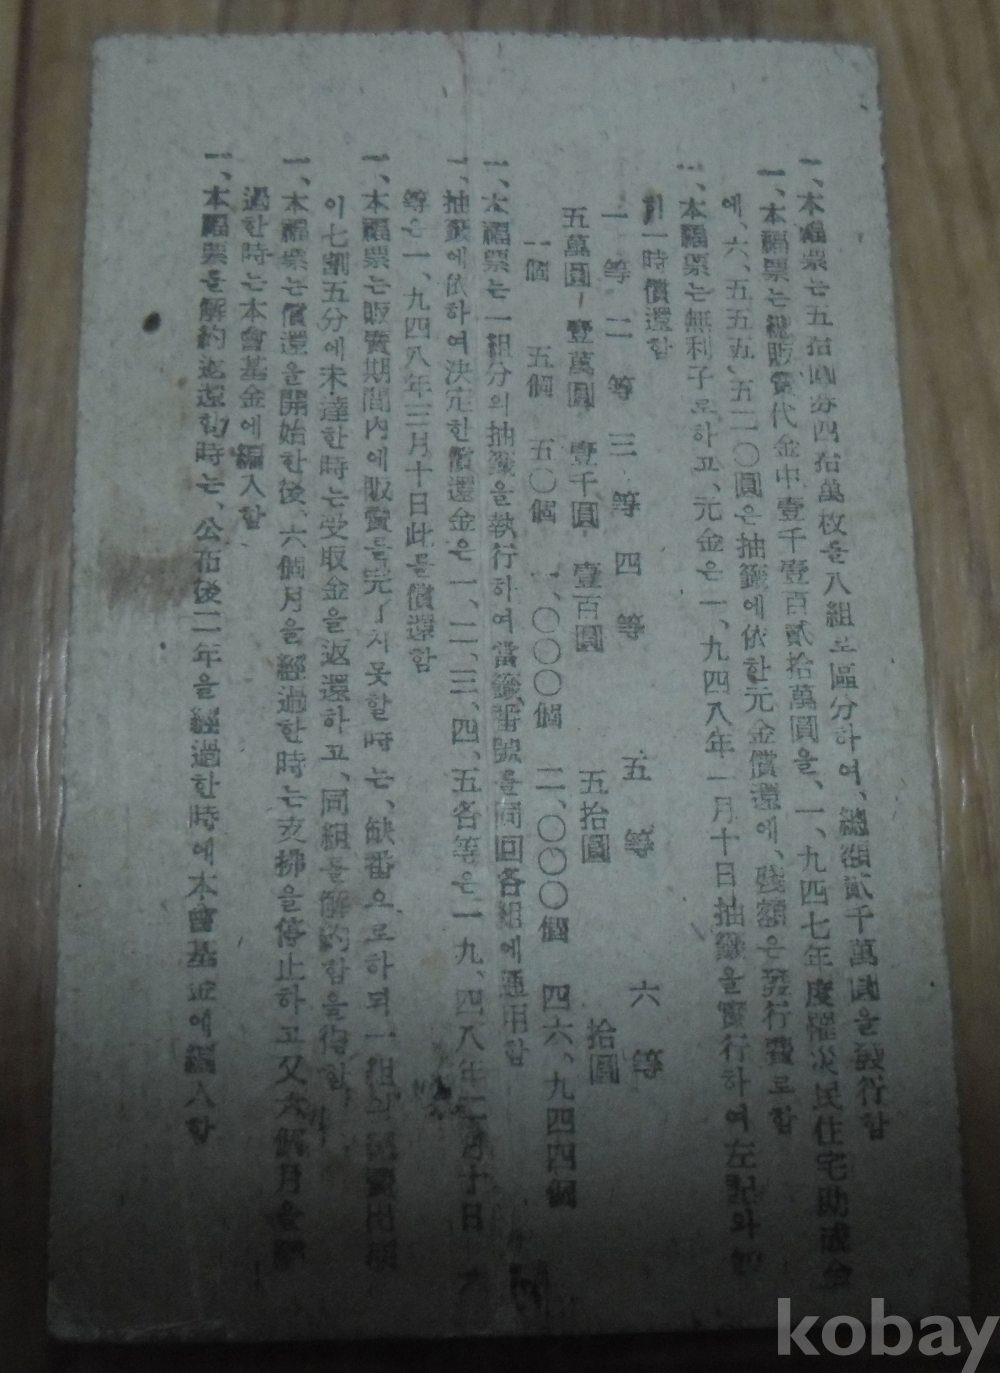 一、本福票는五拾圓券四拾萬枚을八組로區分하여、總額貳千萬圓을發行함
一、本福票는總販賣代金中壹千壹百貳拾萬圓을、一、九四七年度罹災民住宅助成金
에、六、五五五、五二〇圓은抽籤에依한元金償還에、殘額은發行費로함
一、本福票는無利子로하고、元金은一、九四八年一月十日抽籤을實行하여左記와如
히一時償還함
一等 二等 三等 四等 五等 六等
五萬圓 壹萬圓 壹千圓 壹百圓 五拾圓 拾圓
一個 五個 五〇個 一、〇〇〇個 二、〇〇〇個 四六、九四四個
一、本福票는一組分의抽籤을執行하여當籤番號을同回各組에通用함
一、抽籤에依하여決定한償還金은一、二、三、四、五各等은一九、四八年二月十日 六
等은一、九四八年三月十日此를償還함
一、本福票는販賣期間內에販賣를完了치못할時는、缺番으로하되一組의販賣出
이七割五分에未達한時는受取金을返還하고、同組를解約함을得함
一、本福票는償還을開始한後、六個月을經過한時는支拂을停止하고又六個月을經
過한時는本會基金에編入함
一、本福票를解約返還할時는、公布後二年을經過한時에本會基金에編入함
kobay